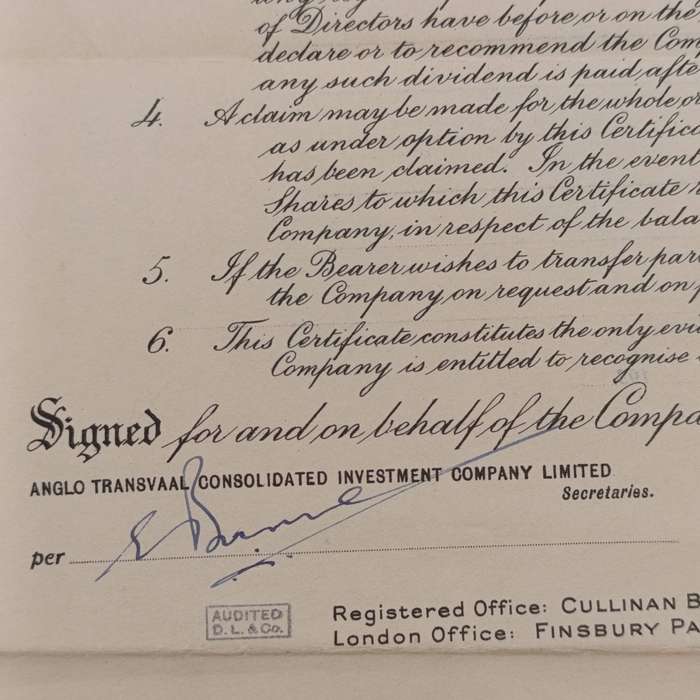 of Directors have before or on the
declare or to recommend the Com
any such dividend is paid, afte
4. A claim may be made for the whole or
as under option by this Certifica
has been claimed. In the event
Shares to which this Certificate
Company, in respect of the bala
5. If the Bearer wishes to transfer par
the Company on request and on
6. This Certificate constitutes the only evi
Company is entitled to recognise
Signed for and on behalf of the Compa
ANGLO TRANSVAAL CONSOLIDATED INVESTMENT COMPANY LIMITED
Secretaries.
per
AUDITED
D. L. & Co.
Registered Office: CULLINAN B
London Office: FINSBURY PA